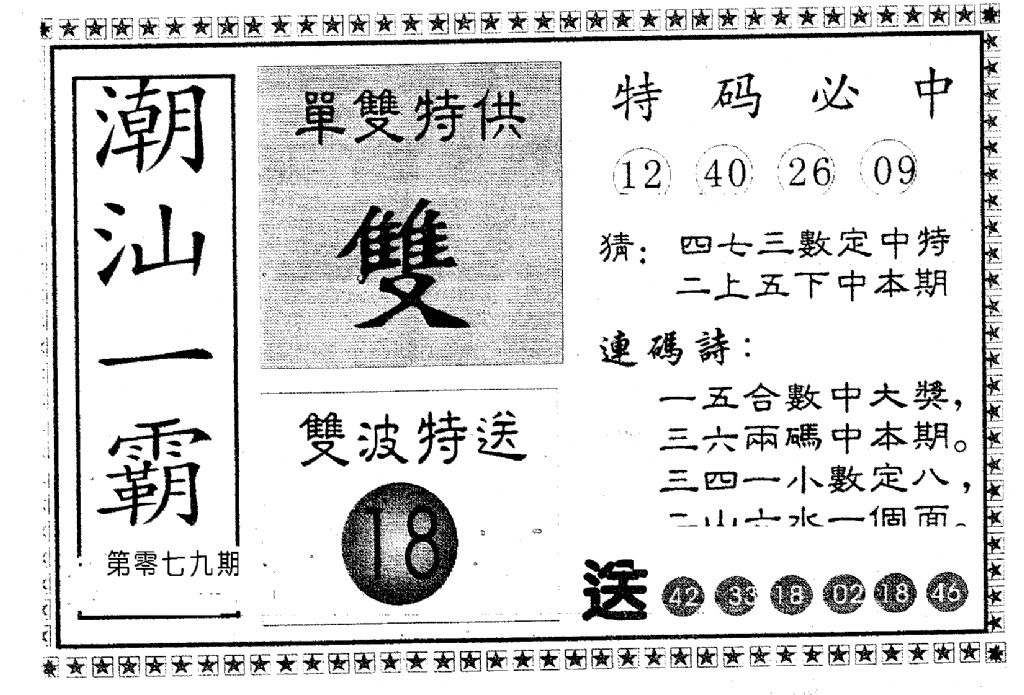 潮汕一霸
第零七九期
單雙特供
雙
雙波特送
18
特码必中
12 40 26 09
猜：四七三數定中特
二上五下中本期
連碼詩：
一五合數中大獎，
三六兩碼中本期。
三四一小數定八，
二山六水一個面。
送 42 33 18 02 18 46